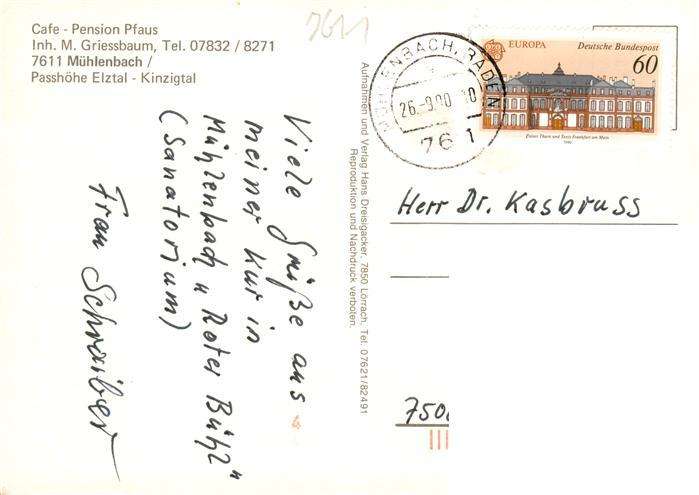 Cafe - Pension Pfaus
Inh. M. Griessbaum, Tel. 07832 / 8271
7611 Mühlenbach /
Passhöhe Elztal - Kinzigtal
7611
Viele Grüße aus
meiner Kur in
Mühlenbach „Roter Bühl"
(Sanatorium)
Frau Schraiber
Aufnahmen und Verlag Hans Dreisigacker, 7850 Lörrach, Tel. 07621/82491
Reproduktion und Nachdruck verboten.
MÜHLENBACH, BADEN
26.-9.90 -10
761
EUROPA
Deutsche Bundespost
60
Palais Thurn und Taxis Frankfurt am Main
1990
Herr Dr. Kasbruss
750